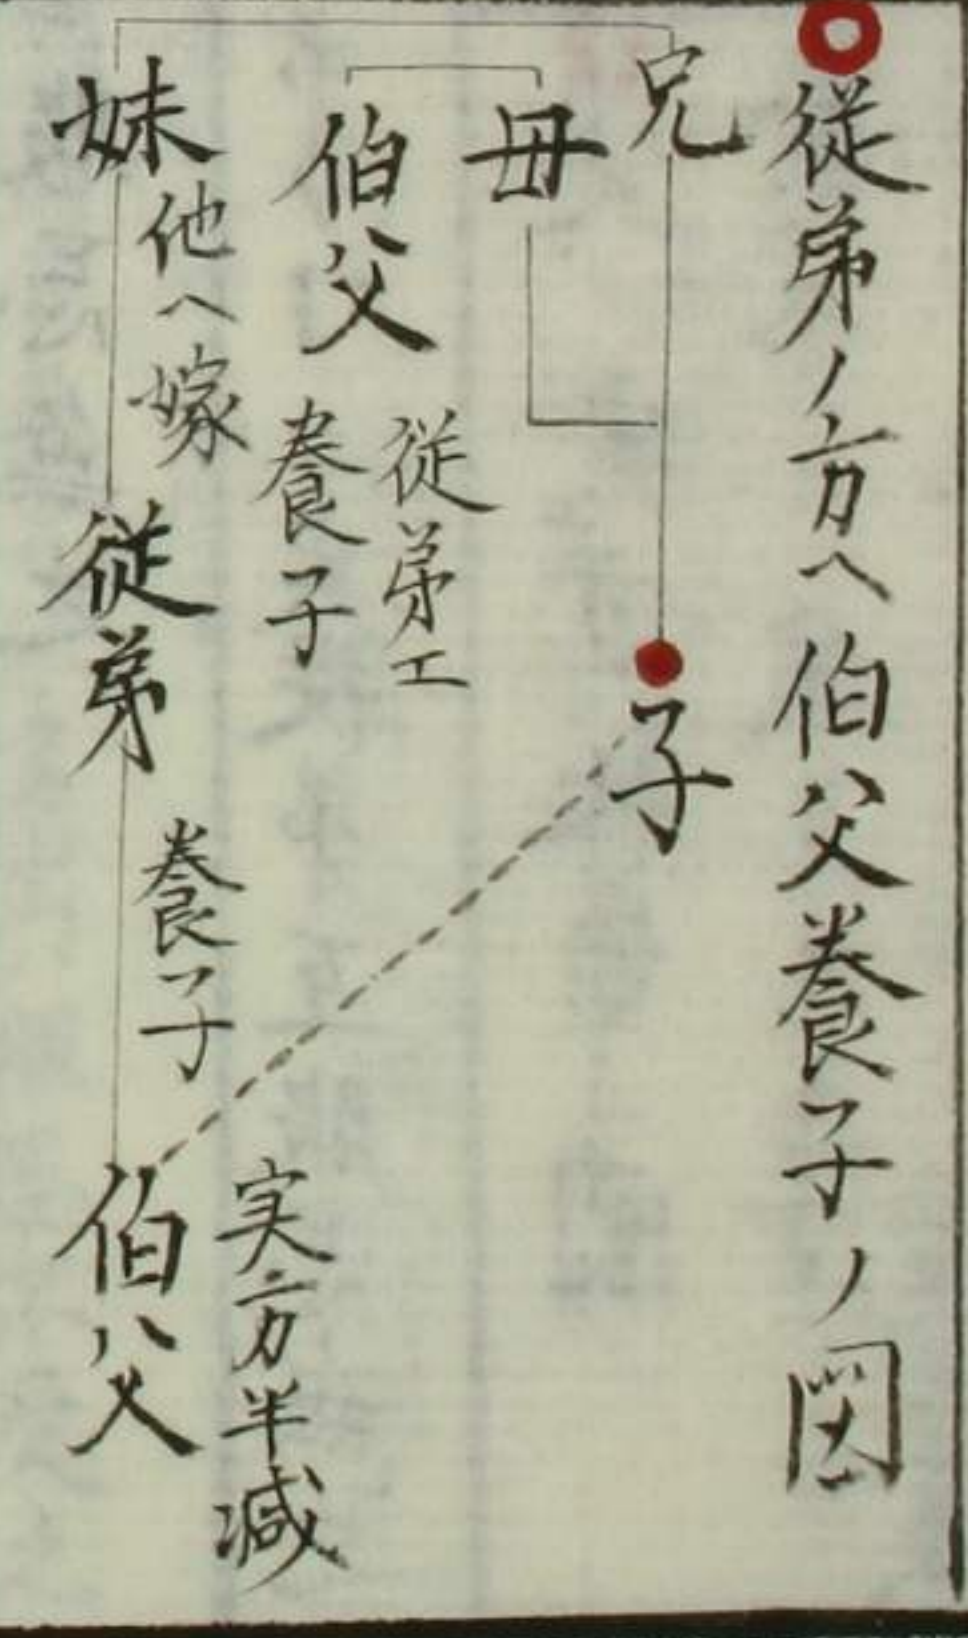 従弟ノ方ヘ伯父養子ノ図
兄
母
伯父
従弟エ
養子
妹
他ヘ嫁
子
従弟
養子
伯父
実方半減